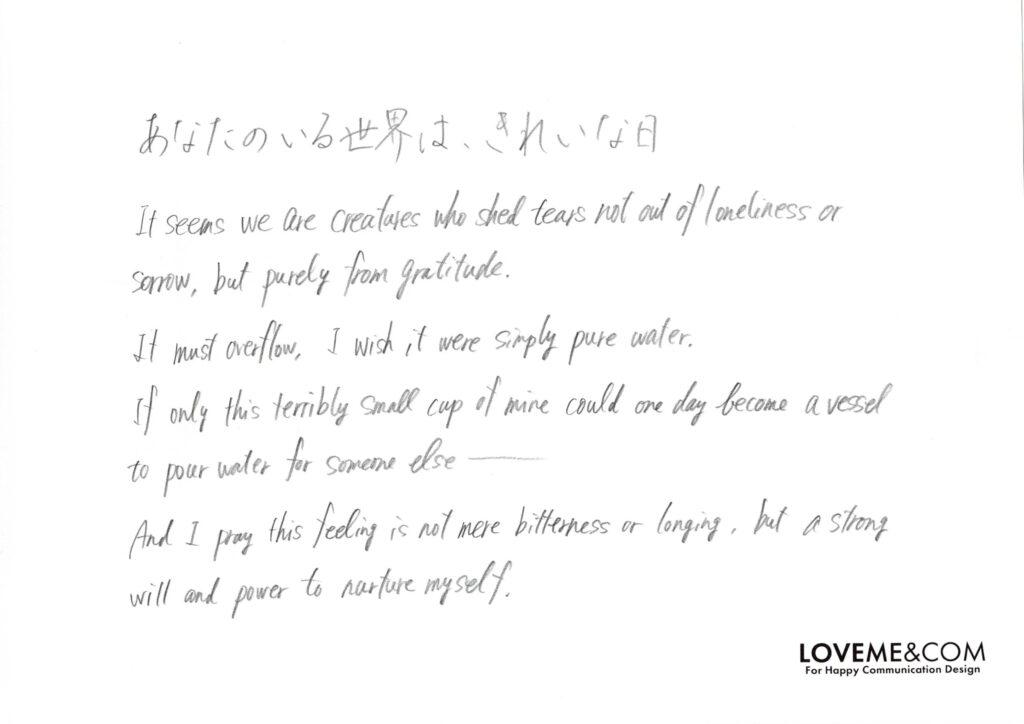 あなたのいる世界は、きれいな日
It seems we are creatures who shed tears not out of loneliness or
sorrow, but purely from gratitude.
It must overflow, I wish it were simply pure water.
If only this terribly small cup of mine could one day become a vessel
to pour water for someone else ——
And I pray this feeling is not mere bitterness or longing, but a strong
will and power to nurture myself.
LOVEME&COM
For Happy Communication Design